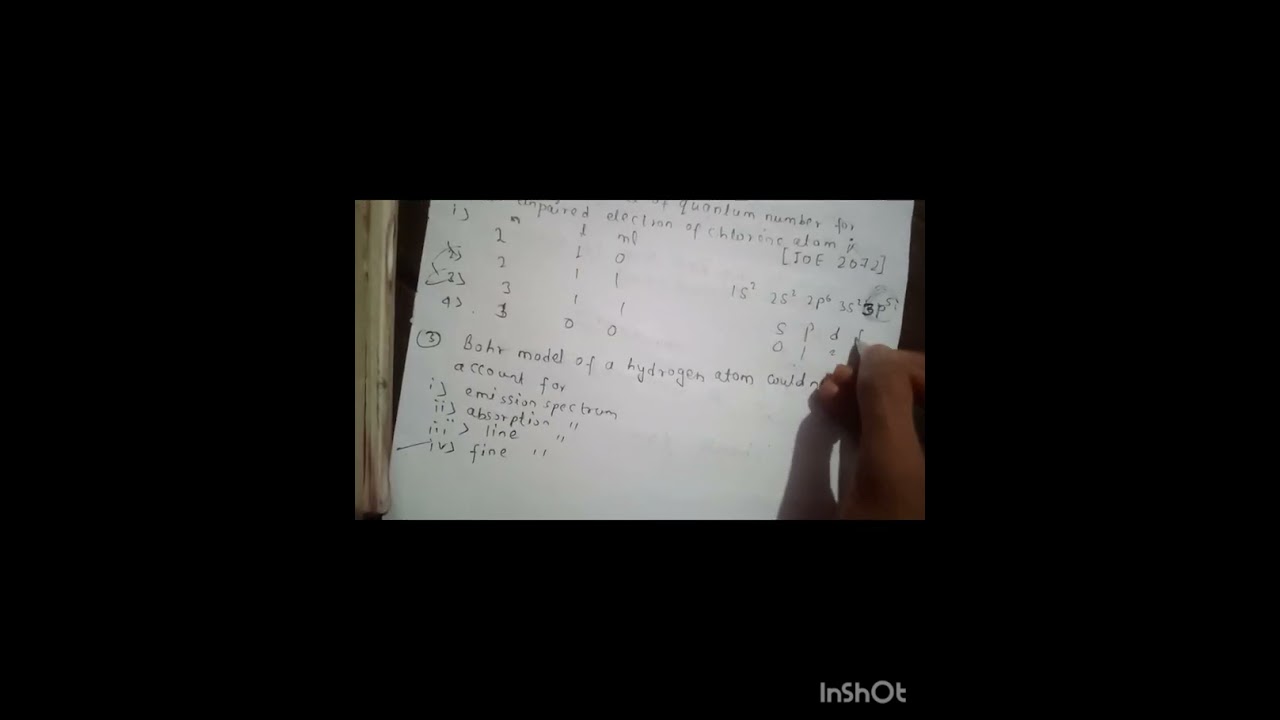 of quantum number for
unpaired electron of chlorine atom is
[IOE 2072]
i) n l ml
2 1 0
2) 2 1 1
3) 3 1 1
4) 3 0 0
1s² 2s² 2p⁶ 3s² 3p⁵
s p d f
0 1 2
③ Bohr model of a hydrogen atom could
account for
i) emission spectrum
ii) absorption "
iii) line "
iv) fine "
InShOt